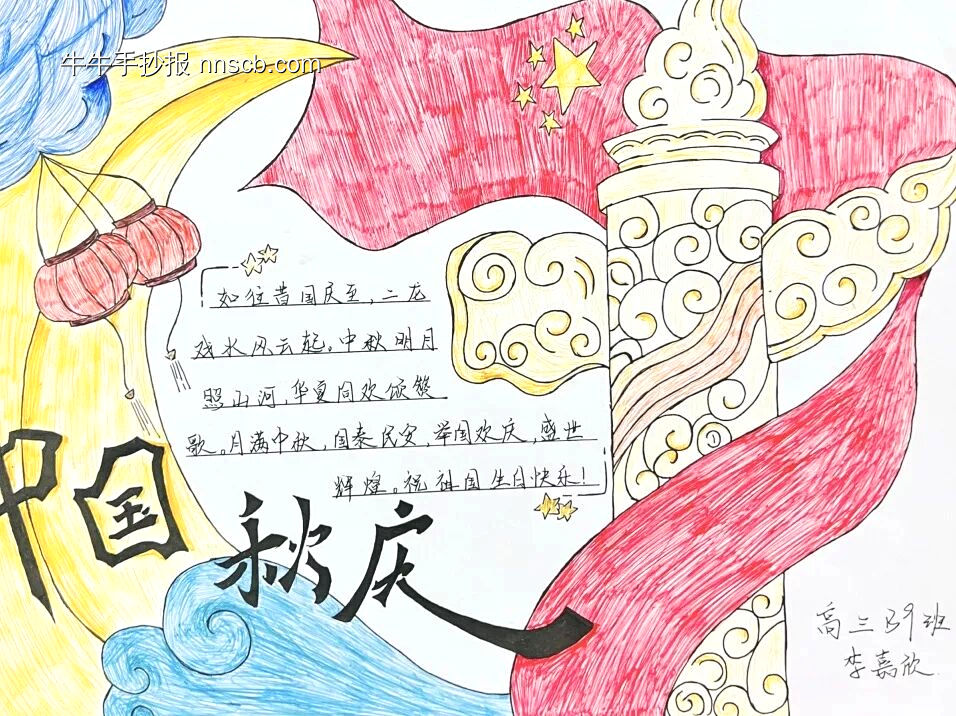 牛牛手抄报 nnscb.com
如往昔国庆至，二龙
戏水风云起。中秋明月
照山河，华夏同欢颂赞
歌。月满中秋，国泰民安，举国欢庆，盛世
辉煌。祝祖国生日快乐！
中国
秋庆
高三39班
李嘉欣